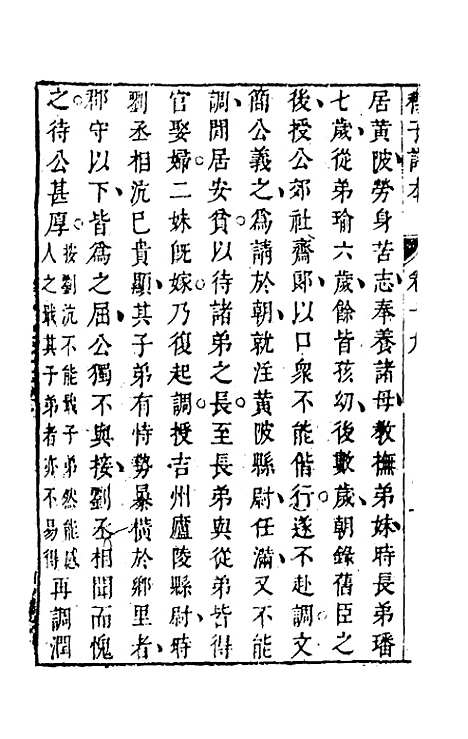 程子詳本　卷十九
居黃陂勞身苦志奉養諸母教撫弟妹時長弟璠
七歲從弟瑜六歲餘皆孩幼後數歲朝錄舊臣之
後授公郊社齋郎以口衆不能偕行遂不赴調文
簡公義之爲請於朝就注黃陂縣尉任滿又不能
調閒居安貧以待諸弟之長至長弟與從弟皆得
官娶婦二妹旣嫁乃復起調授吉州廬陵縣尉時
劉丞相沆已貴顯其子弟有恃勢暴橫於鄉里者
郡守以下皆爲之屈公獨不與接劉丞相聞而愧
之待公甚厚按劉沆不能戢子弟然能感人之戢其子弟者亦不易得再調潤